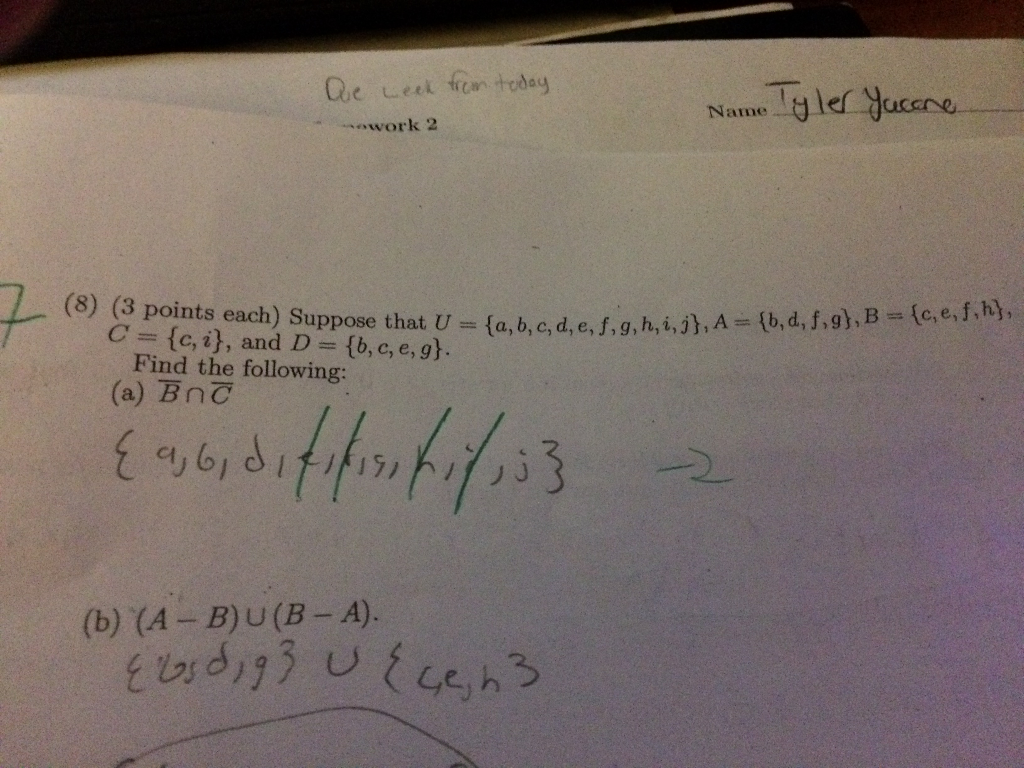 One week from today
work 2
Name Tyler Yuccne
7
(8) (3 points each) Suppose that U = {a, b, c, d, e, f, g, h, i, j}, A = {b, d, f, g}, B = {c, e, f, h},
C = {c, i}, and D = {b, c, e, g}.
Find the following:
(a) B̅ ∩ C̅
{ a, b, d, e, f, g, h, i, j } -2
(b) (A − B) ∪ (B − A).
{ b, d, g } ∪ { c, e, h }